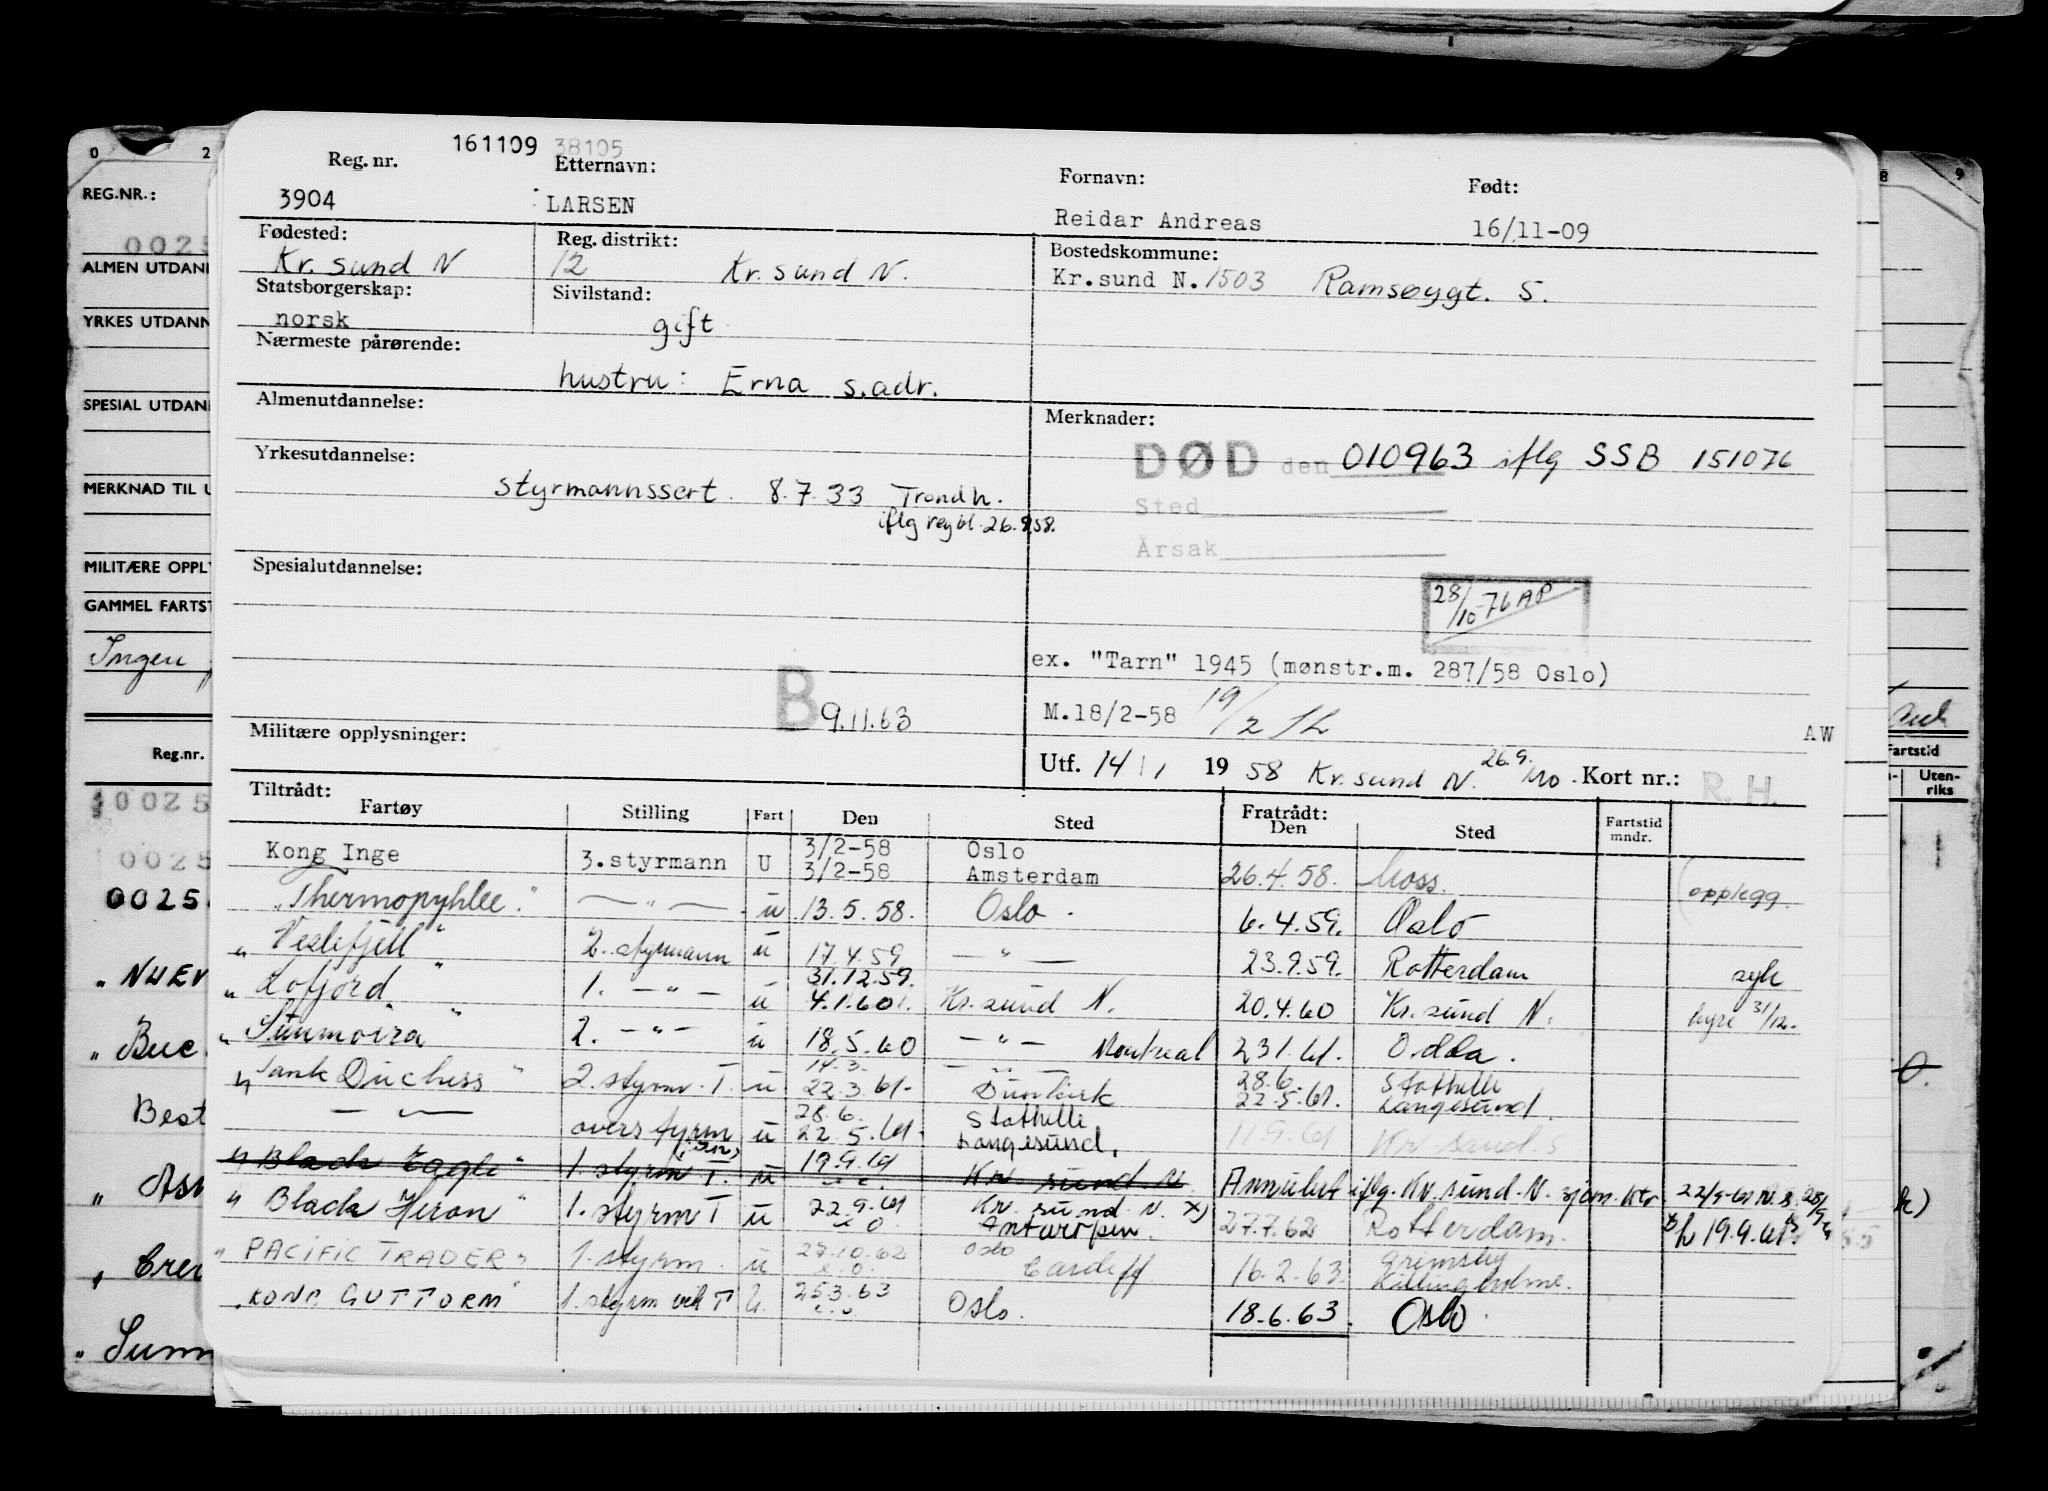 161109 38105
Reg. nr. Etternavn: Fornavn: Født:
3904 LARSEN Reidar Andreas 16/11-09
Fødested: Reg. distrikt: Bostedskommune:
Kr. sund N 12 Kr. sund N. Kr.sund N. 1503 Ramsøygt. 5.
Statsborgerskap: Sivilstand:
norsk gift
Nærmeste pårørende:
hustru: Erna s.adr.
Almenutdannelse: Merknader:
DØD den 010963 iflg SSB 151076
Yrkesutdannelse:
styrmannssert. 8.7.33 Trondh.
iflg regbl. 26.9.58.
Sted
Årsak
Spesialutdannelse:
28/10-76 AP
ex. "Tarn" 1945 (mønstr.m. 287/58 Oslo)
B 9.11.63
M.18/2-58 19/2
AW
Militære opplysninger:
Utf. 14/1 1958 Kr. sund N. 26.9. Kort nr.: R. H.
Tiltrådt: Fratrådt:
Fartøy Stilling Fart Den Sted Den Sted Fartstid mndr.
Kong Inge 3.styrmann U 3/2-58 Oslo
3/2-58 Amsterdam 26.4.58. Moss. opplegg.
"Thermopyhlee" — " — u 13.5.58. Oslo. 6.4.59. Oslo
" Veslefjell " 2. styrmann u 17.4.59 — " — 23.9.59. Rotterdam syk
" Lofjord " 1. — " — u 31.12.59. 4.1.60. Kr. sund N. 20.4.60 Kr. sund N. hyre 31/12.
" Sunmoira " 2. — " — u 18.5.60 — " — Montreal 23.1.61. Odda.
" Tank Duchess " 2. styrm. T. u 14.3. 22.3.61- — " — Dunkirk 28.6. 22.5.61. Stathelle Langesund.
— " — overstyrm u 28.6. 22.5.61- Stathelle Langesund. 11.9.61 Kr sund. S
" Black Eagle " 1. styrm T. u 19.9.61 Kr sund N. Annulert iflg. Kr. sund. N. sjøm. ktr. 22/9-61 N.S. 28/9
" Black Heron " 1. styrm T u 22.9.61 Kr. sund N. x) Antwerpen. 27.7.62 Rotterdam. 19.9.61
" PACIFIC TRADER " 1. styrm. u 27.10.62 Oslo Cardiff 16.2.63. Grimsby Killingholme.
"KONG GUTTORM" 1. styrm vik T U. 25.3.63 Oslo. 18.6.63. Oslo.
0 2
REG.NR.:
0025
ALMEN UTDAN
YRKES UTDANN
SPESIAL UTDAN
MERKNAD TIL U
MILITÆRE OPPL
GAMMEL FARTST
Ingen
Reg.nr.
0025
0025
0025
Best
8 9
Fartstid
Uten-
riks